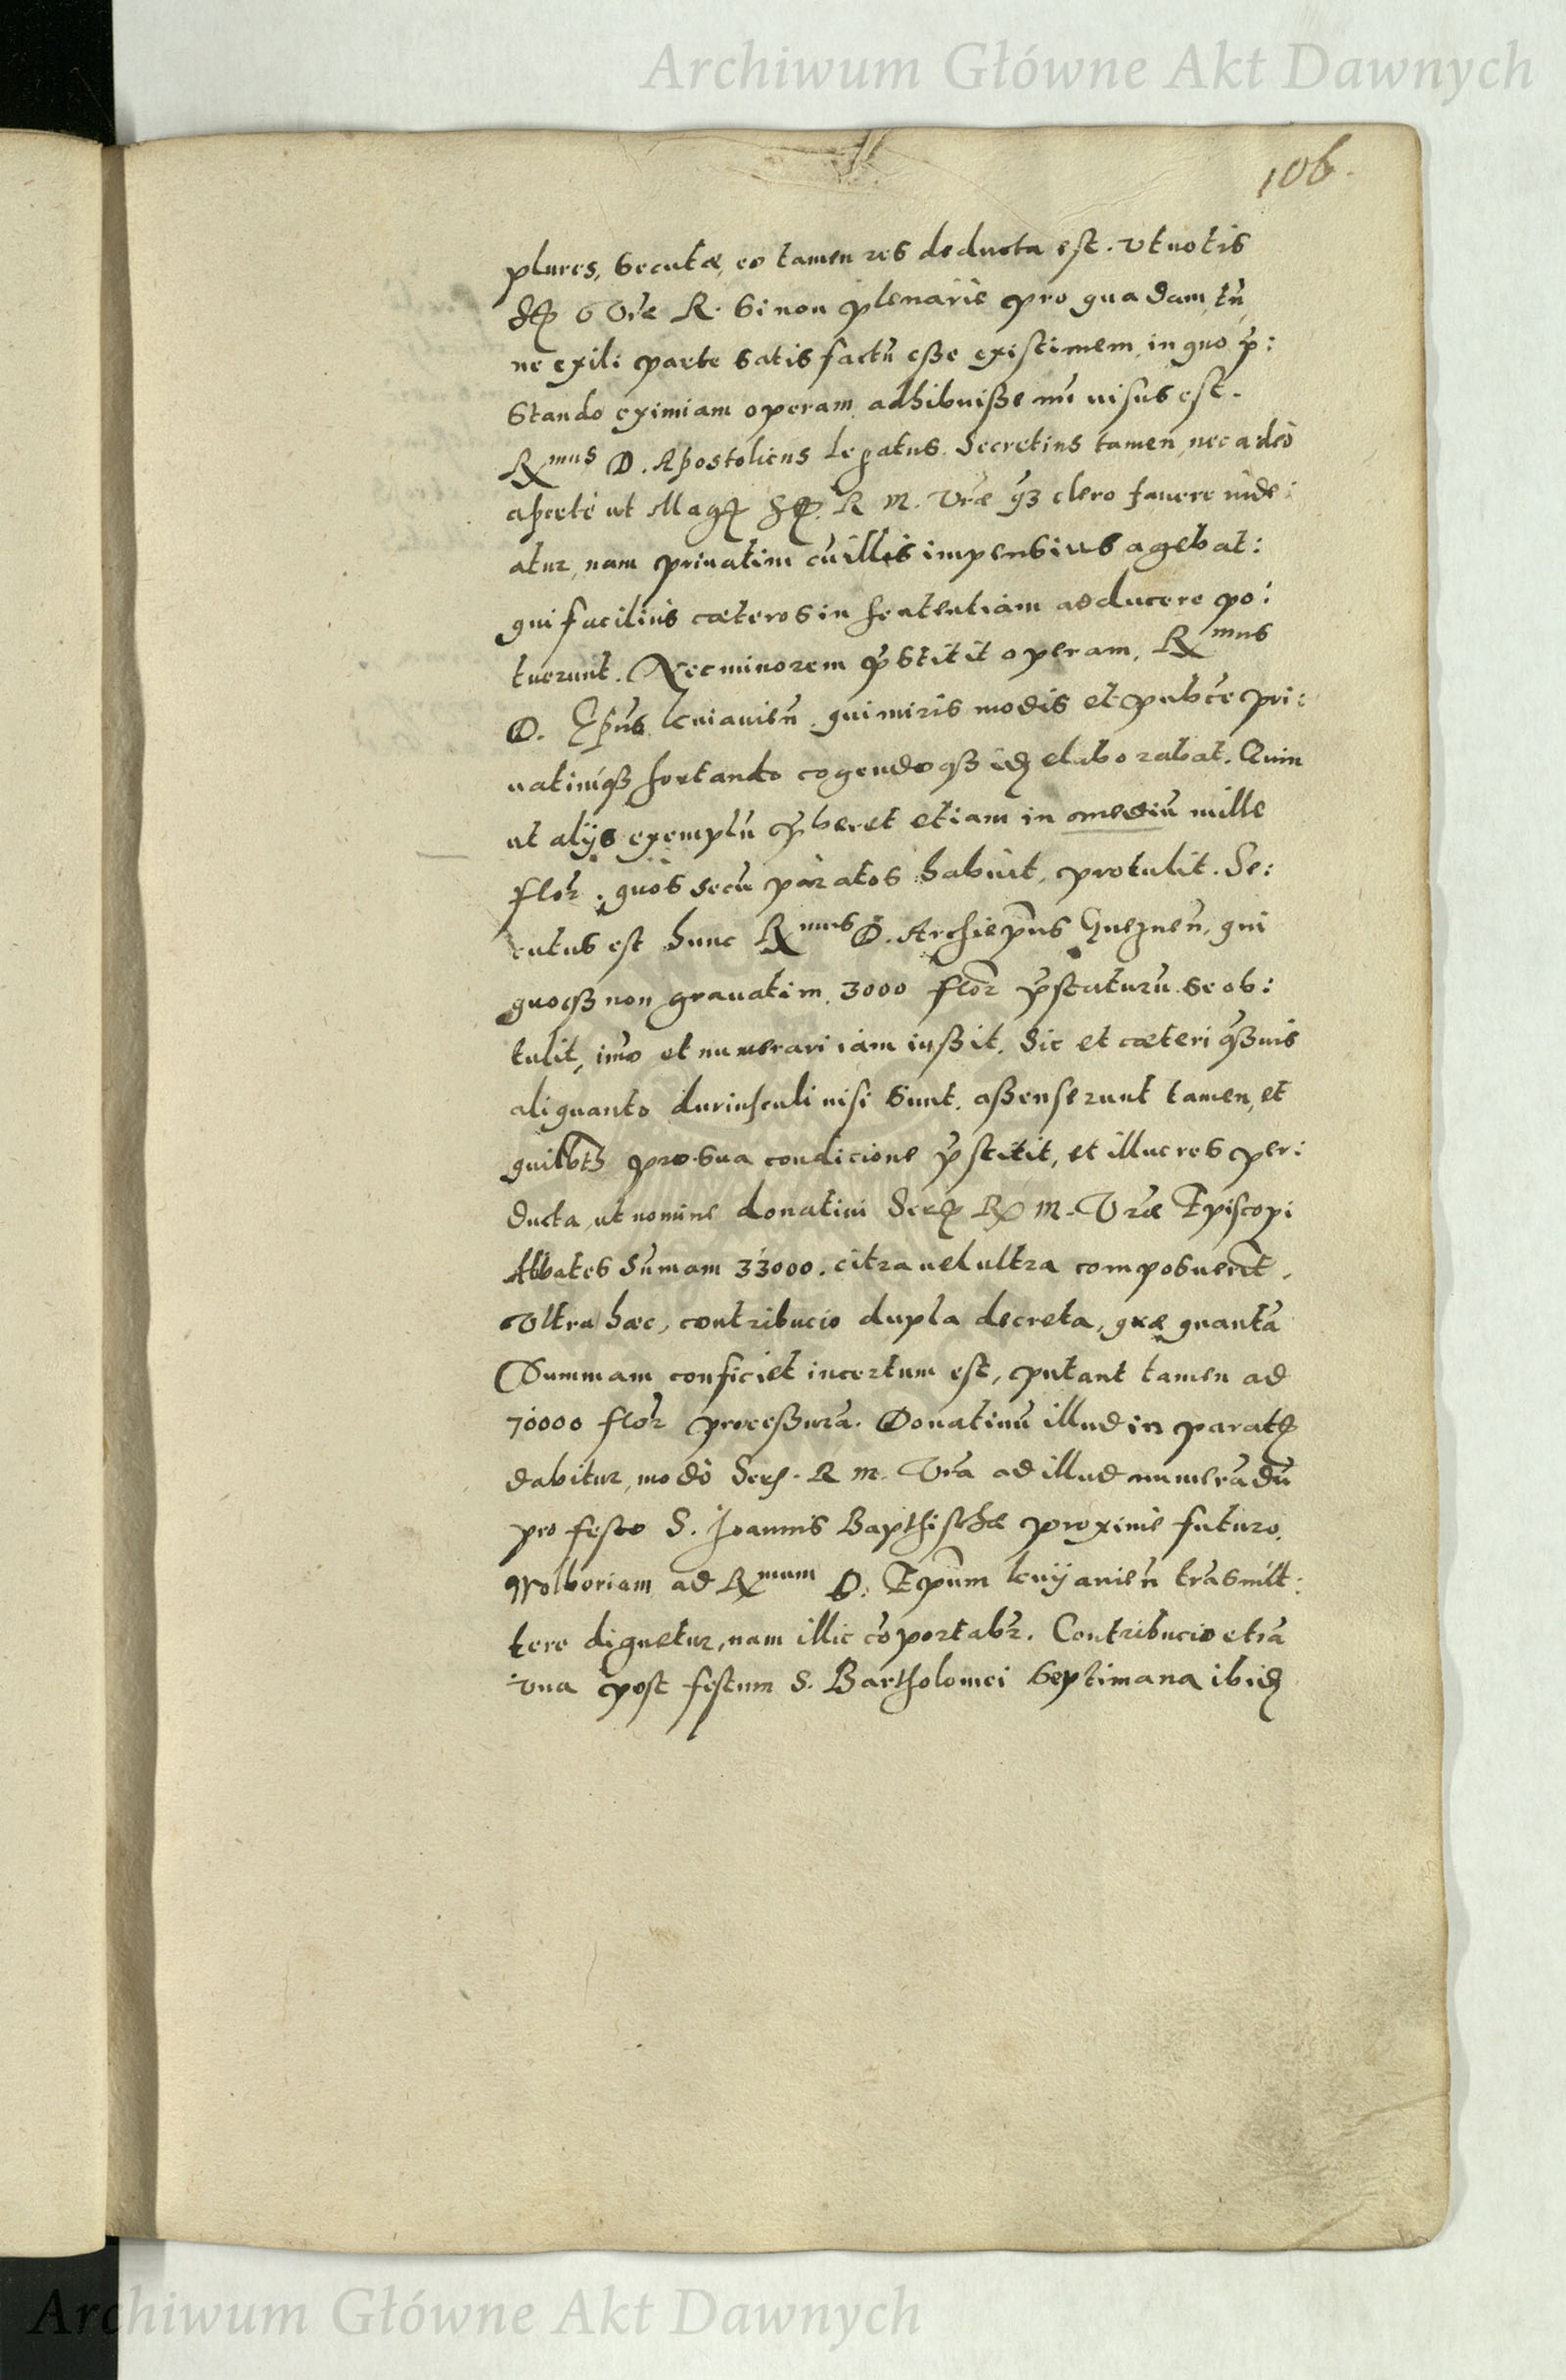 Archiwum Główne Akt Dawnych
106.
plures, secutæ, eo tamen res deducta est. Vt uotis
S Vræ R. Si non plenarie pro quadam, tn̄
ne exili parte satis factū esse existimem, in quo p̄:
stando eximiam operam adhibuisse mī uisus est.
Rmus D. Apostolicus Legatus. Secretius tamen, nec adeo
aperte ut Mag R M. Vræ clero fauere uide:
atur, nam priuatim cū illis impensius agebat:
qui facilius cæteros in sententiam adducere po:
tuerunt. Nec minorem p̄stitit operam, Rmus
D. Ep̄us Cuiauien̄. qui miris modis et publ̄ce pri:
uatimq3 hortando cogendoq3 id elaborabat. Quin
ut alijs exemplū p̄beret etiam in mediū mille
flor̄. quos secū paratos habuit, protulit. Se:
cutus est hunc Rmus D. Archiep̄us Gneznen̄. qui
quoq3 non grauatim. 3000 flor̄ p̄staturū se ob:
tulit, imo et numerari iam iussit. Sic et cæteri q̄ßuis
aliquanto duriusculi uisi sunt. assenserunt tamen, et
quilibet pro sua condicione p̄stitit, et illuc res per:
ducta, ut nomine donatiui Ser R M. Vræ Episcopi
Abbates Sum̄am 33000. citra uel ultra composuer̄t.
Vltra hæc, contribucio dupla decreta, quæ quantā
Summam conficiet incertum est, putant tamen ad
70000 flor̄ processurā. Donatiuū illud in parat
dabitur, modo Ser. R M. Vra ad illud numerādū
pro festo S. Joannis Bapthisthæ proxime futuro.
Wolboriam ad Rmum D. Ep̄um Cuyauien̄ trāsmitt:
tere dignetur, nam illic cōportabr̄. Contribucio etiā
vna post festum S. Bartholomei septimana ibid
Archiwum Główne Akt Dawnych